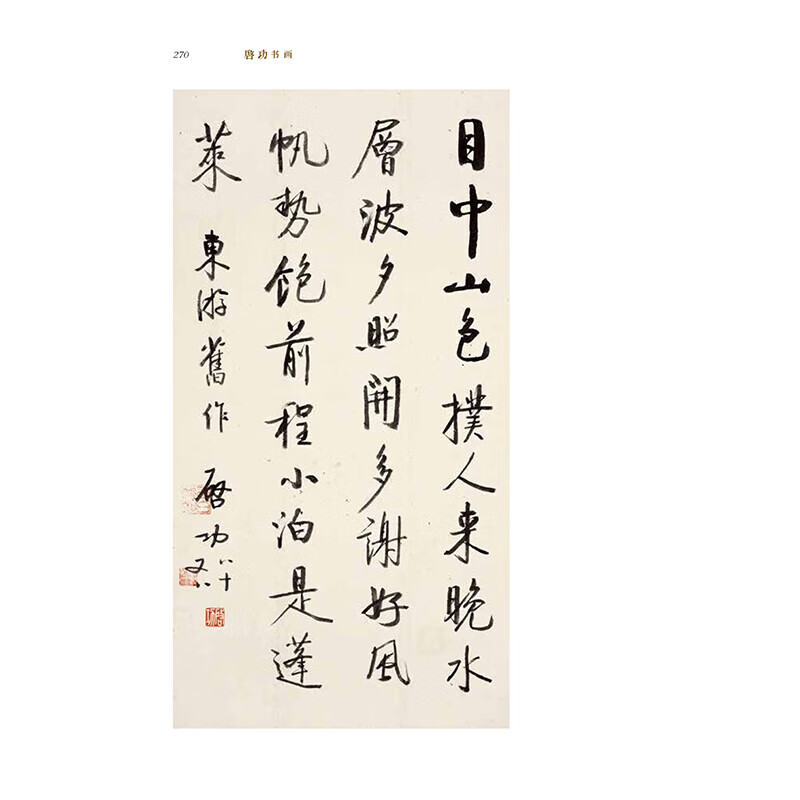 270
啓功书画
目中山色撲人来晚水
層波夕照開多謝好風
帆势飽前程小泊是蓬
萊 東游舊作 啟功八十
又八